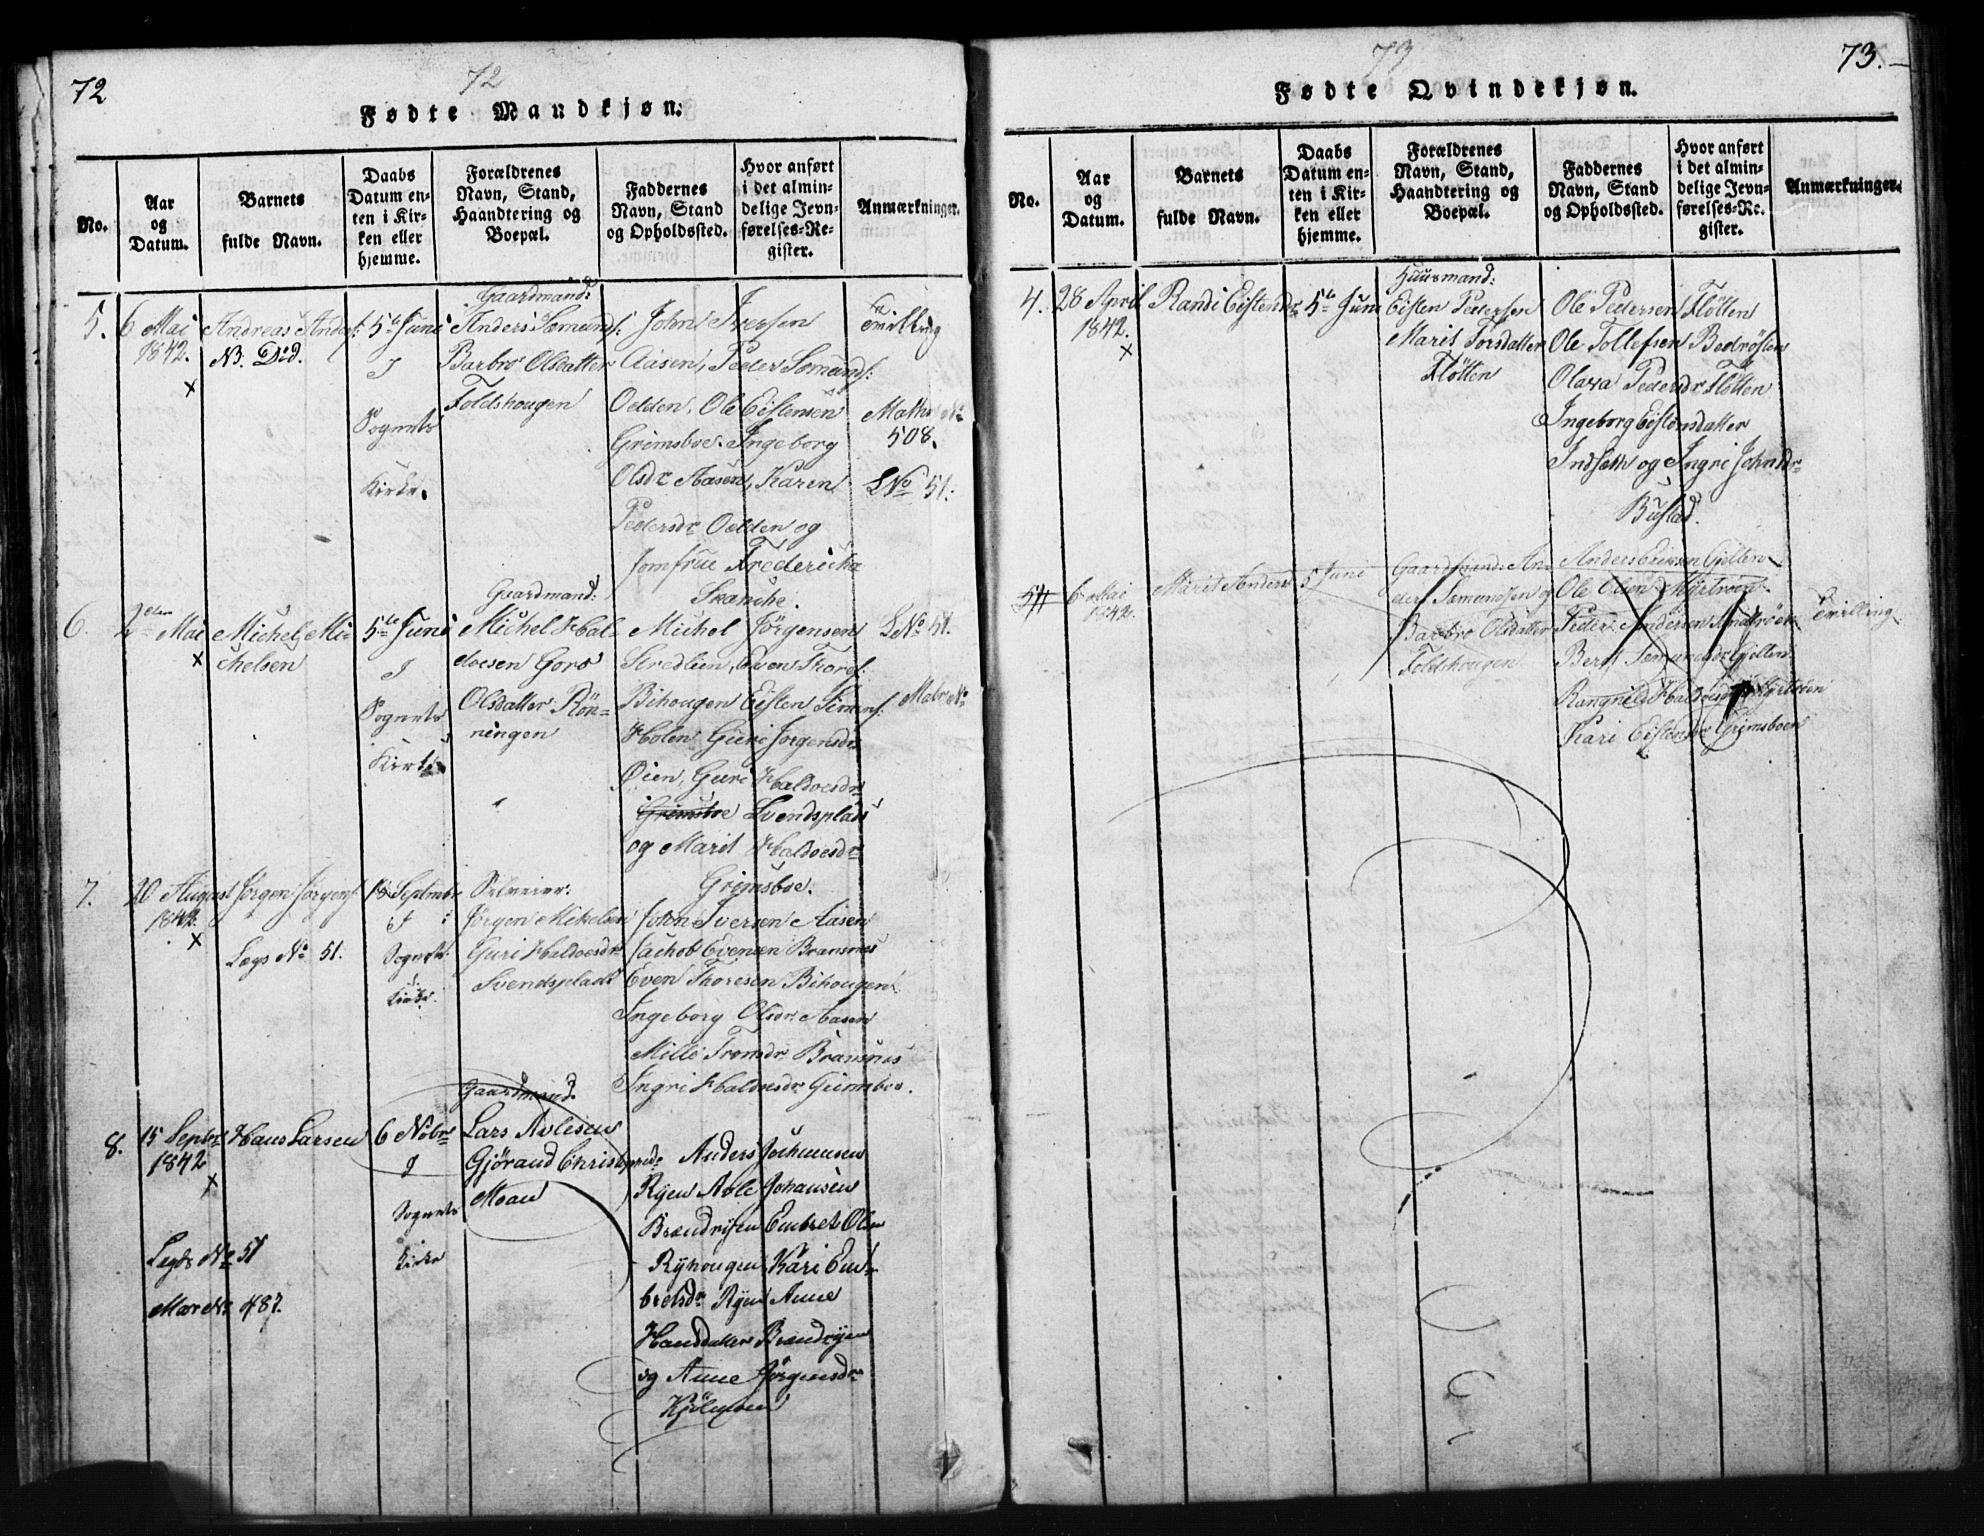 72
72
Fødte Mandkjøn.
No.
Aar og Datum.
Barnets fulde Navn.
Daabs Datum enten i Kirken eller hjemme.
Forældrenes Navn, Stand, Haandtering og Boepæl.
Faddernes Navn, Stand og Opholdssted.
Hvor anført i det almindelige Jevnførelses-Register.
Anmærkninger.
5.
6 Mai
1842.
x
Andreas Anders:
NB. Död.
5te Juni
I
Sognets
Kirke.
Gaardmand:
Anders Semunds:
Barbro Olsdatter
Foldshougen
John Iversen
Aasen, Peder Semunds:
Oelden, Ole Eistensen
Grimsboe. Ingeborg
Olsdr Aasen, Karen
Pedersdr Oelden og
Jomfrue Frederickа
Skanche.
Tvilling
Mathr No
508.
LNo 51.
6.
2den Mai
x
Michel Mi
chelsen
5te Juni
I
Sognets
Kirke
Gaardmand:
Michel Hal
doesen Goro
Olsdatter Rön-
ningen
Michel Jörgensen
Stredlien, Even Thors:
Bihougen Eisten Simens:
Holen, Guri Jörgensdr
Øien, Guri Haldoesdr
Grimsboe Svendsplads
og Marit Haldoesdr
Grimsboe.
LNo 51.
Matr No
7.
20 August
1842.
x
Jörgen Jörgens:
Lægs No 51.
18 Septmbr
I
Sognets
Kirke.
Selveier:
Jörgen Mikelsen
Guri Haldoesdr
Svendsplads
John Iversen Aasen
Jachob Evensen Bransnes
Even Thoresen Bihougen
Ingeborg Olsdr. Aasen
Mille Tronsdr Bransnes
Ingri Haldoesdr Grimsboe.
8.
15 Septbr
1842
x
Legds No 51
Mar No 487.
Hans Larsen
6 Nobr
I
Sognets
Kirke
Gaardmand.
Lars Avlesen
Gjöraud
Moan
Anders Jochumsen
Ryen Avle Johansen
Brændryen Embret Olsen
Ryhougen, Kari Em-
bretsdr Ryen Anne
Hansdatter Brændryen
og Anne Jörgensdr
Kjölmoen
73
73.
Fødte Qvindekjøn.
No.
Aar og Datum.
Barnets fulde Navn.
Daabs Datum enten i Kirken eller hjemme.
Forældrenes Navn, Stand, Haandtering og Boepæl.
Faddernes Navn, Stand og Opholdssted.
Hvor anført i det almindelige Jevnførelses-Re. gister.
Anmærkninger.
4.
28 April
1842.
x
Randi Eistensdr
5te Juni
Huusmand:
Eisten Pedersen
Marit Torsdatter
Flötten
Ole Pedersen Flötten
Ole Tollefsen Bedröften
Olava Pedersdr Flötten
Ingeborg Eistensdatter
Indseth og Ingri Johnsdr
Bustad.
5
6 Mai
1842.
Marit Andersd
5 Juni
Gaardmand: An
ders Semundsen og
Barbro Olsdatter
Foldshougen
Anders Eriksen Gjelten
Ole Olsen
Peder Andersen
Berit Semundsdr Gjelten
Rangnild Haldoesdr
Kari Eistensdr Grimsboen
Tvilling